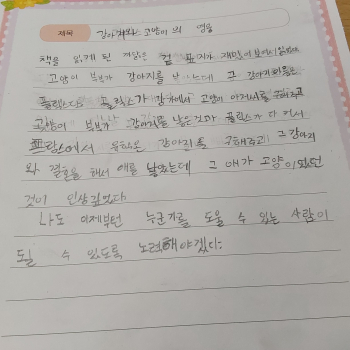 제목 강아지와 고양이의 영웅
책을 읽게 된 계기는 겉 표지가 재밌어 보여서 읽었다.
고양이 부부가 강아지를 낳았는데 그 강아지 이름은
플릭스다. 플릭스가 강가에서 고양이 아저씨를 구해주고
고양이 부부가 강아지를 낳은 것과 플릭스가 다 커서
에서 강아지를 구해주고 그 강아지
와 결혼을 해서 애를 낳았는데 그 애가 고양이 였던
것이 인상깊었다.
나도 이제부턴 누군가를 도울 수 있는 사람이
될 수 있도록 노력해야겠다.